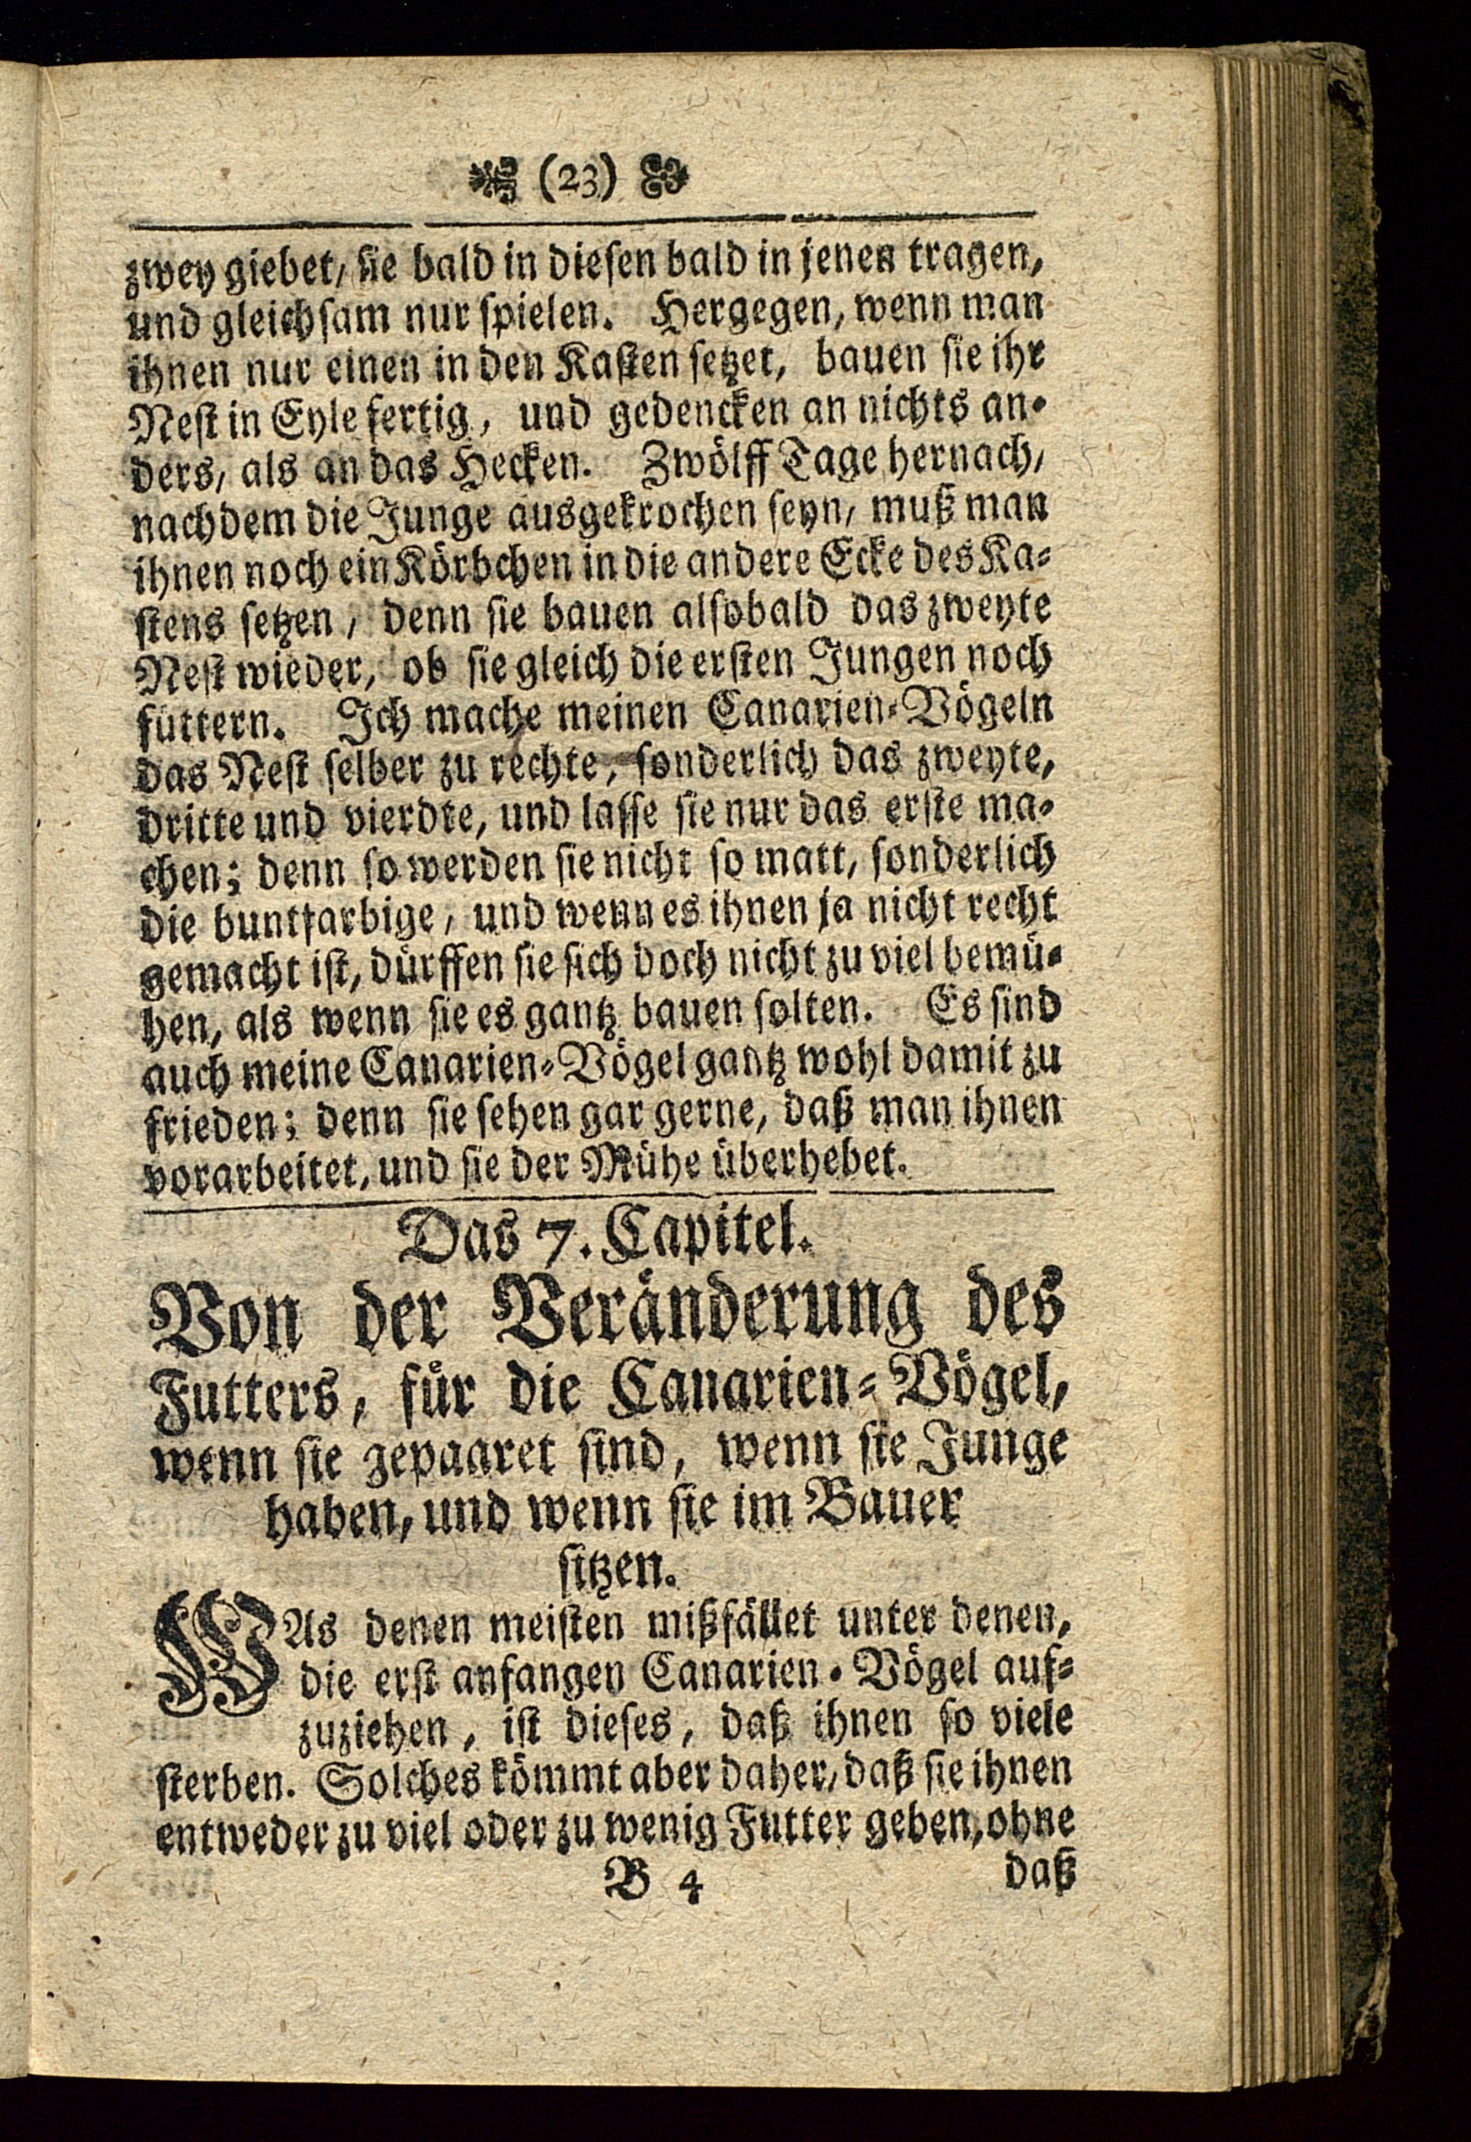 (23)
zwey giebet, sie bald in diesen bald in jenen tragen,
und gleichsam nur spielen. Hergegen, wenn man
ihnen nur einen in den Kasten setzet, bauen sie ihr
Nest in Eyle fertig, und gedencken an nichts an-
ders, als an das Hecken. Zwölff Tage hernach,
nachdem die Junge ausgekrochen seyn, muß man
ihnen noch ein Körbchen in die andere Ecke des Ka-
stens setzen, denn sie bauen alsobald das zweyte
Nest wieder, ob sie gleich die ersten Jungen noch
füttern. Ich mache meinen Canarien-Vögeln
das Nest selber zu rechte, sonderlich das zweyte,
dritte und vierdte, und lasse sie nur das erste ma-
chen; denn so werden sie nicht so matt, sonderlich
die buntfarbige, und wenn es ihnen ja nicht recht
gemacht ist, dürffen sie sich doch nicht zu viel bemü-
hen, als wenn sie es gantz bauen solten. Es sind
auch meine Canarien-Vögel gantz wohl damit zu
frieden; denn sie sehen gar gerne, daß man ihnen
vorarbeitet, und sie der Mühe überhebet.
Das 7. Capitel.
Von der Veränderung des
Futters, für die Canarien-Vögel,
wenn sie gepaaret sind, wenn sie Junge
haben, und wenn sie im Bauer
sitzen.
WAs denen meisten mißfället unter denen,
die erst anfangen Canarien-Vögel auf-
zuziehen, ist dieses, daß ihnen so viele
sterben. Solches kömmt aber daher, daß sie ihnen
entweder zu viel oder zu wenig Futter geben, ohne
B 4 daß